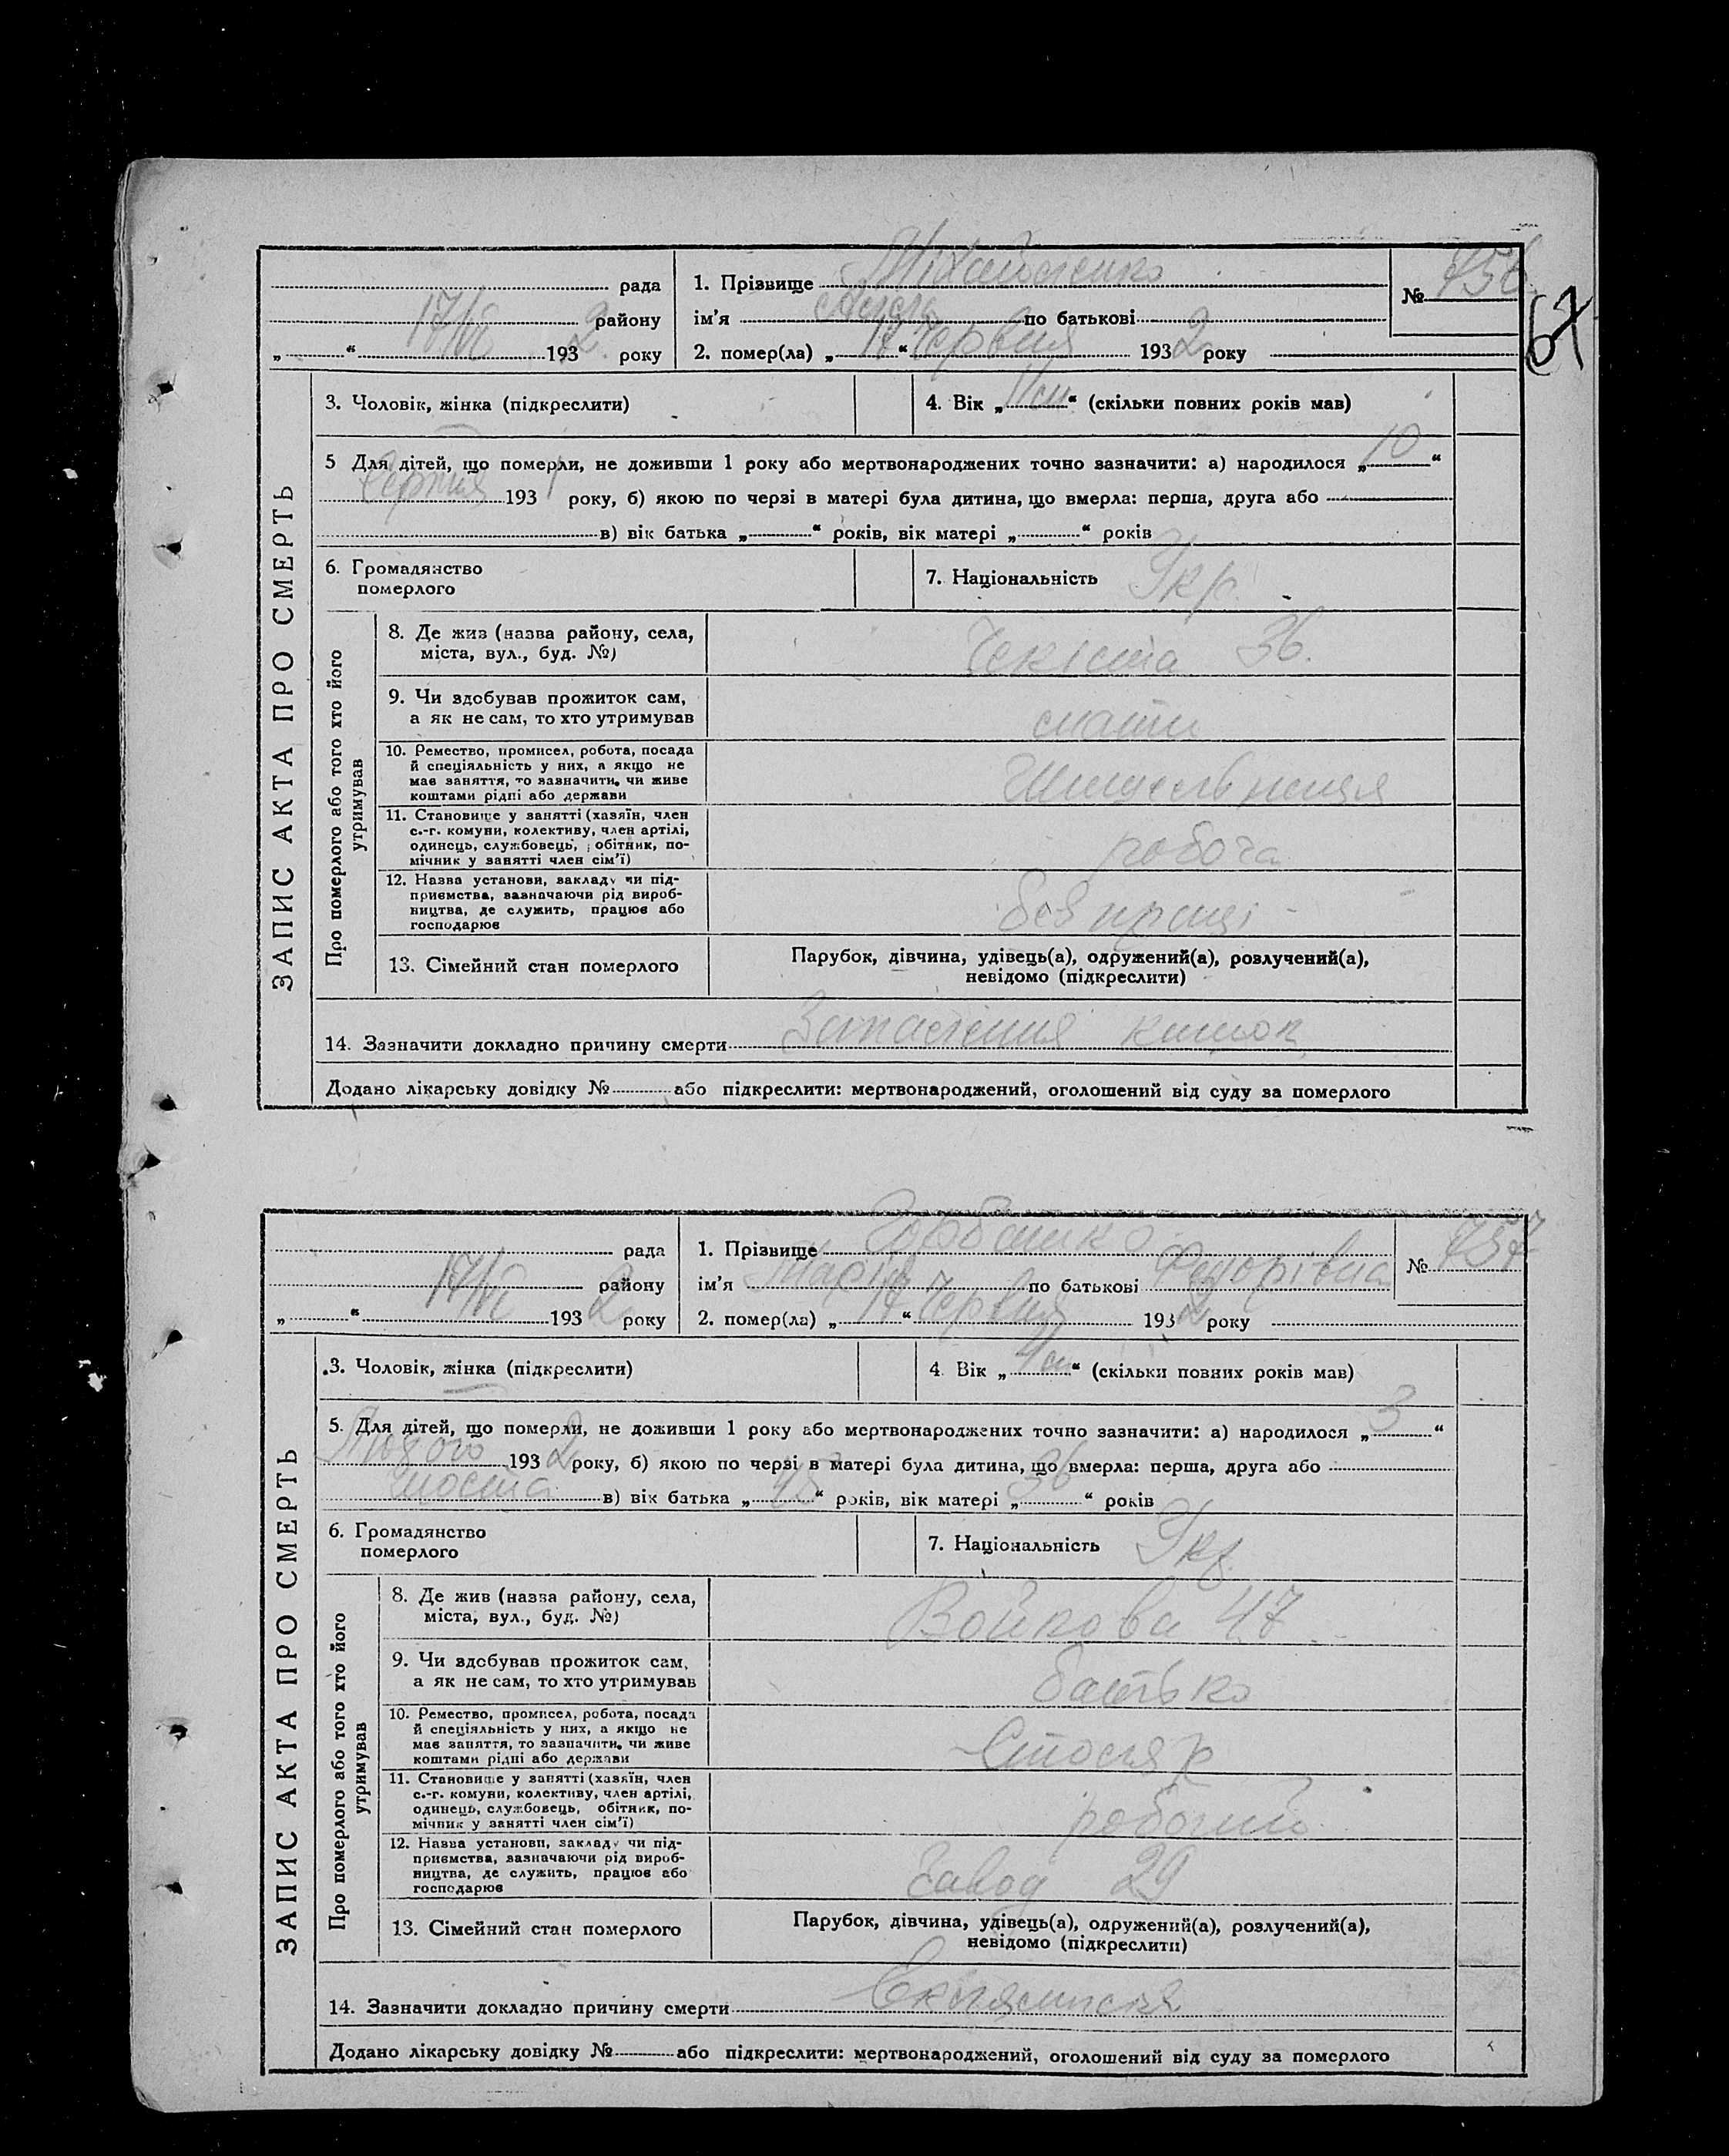 67
ЗАПИС АКТА ПРО СМЕРТЬ
рада
17/VI району
„ “ 1932 року
1. Прізвище Михайленко
ім'я по батькові
2. помер(ла) „17“ Червня 1932 року
№ 756
3. Чоловік, жінка (підкреслити)
4. Вік „11 м“ (скільки повних років мав)
5 Для дітей, що померли, не доживши 1 року або мертвонароджених точно зазначити: а) народилося „10“
Серпня 1931 року, б) якою по черзі в матері була дитина, що вмерла: перша, друга або
в) вік батька „ “ років, вік матері „ “ років
6. Громадянство
померлого
7. Національність Укр.
Про померлого або того хто його
утримував
8. Де жив (назва району, села,
міста, вул., буд. №)
Чекіста 36.
9. Чи здобував прожиток сам,
а як не сам, то хто утримував
мати
10. Ремество, промисел, робота, посада
й спеціяльність у них, а якщо не
має заняття, то зазначити, чи живе
коштами рідні або держави
11. Становище у занятті (хазяїн, член
с.-г. комуни, колективу, член артілі,
одинець, службовець, обітник, по-
мічник у занятті член сім'ї)
робоча
12. Назва установи, закладу чи під-
приємства, зазначаючи рід вироб-
ництва, де служить, працює або
господарює
без праці
13. Сімейний стан померлого
Парубок, дівчина, удівець(а), одружений(а), розлучений(а),
невідомо (підкреслити)
14. Зазначити докладно причину смерти Запалення кишок
Додано лікарську довідку № або підкреслити: мертвонароджений, оголошений від суду за померлого
ЗАПИС АКТА ПРО СМЕРТЬ
рада
17/VI району
„ “ 1932 року
1. Прізвище Горбатко
ім'я Марія по батькові Федорівна
2. помер(ла) „17“ Червня 1932 року
№ 757
3. Чоловік, жінка (підкреслити)
4. Вік „4 м“ (скільки повних років мав)
5. Для дітей, що померли, не доживши 1 року або мертвонароджених точно зазначити: а) народилося „3“
Лютого 1932 року, б) якою по черзі в матері була дитина, що вмерла: перша, друга або
шоста в) вік батька „ “ років, вік матері „36“ років
6. Громадянство
померлого
7. Національність Укр.
Про померлого або того хто його
утримував
8. Де жив (назва району, села,
міста, вул., буд. №)
Войкова 47
9. Чи здобував прожиток сам,
а як не сам, то хто утримував
батько
10. Ремество, промисел, робота, посада
й спеціяльність у них, а якщо не
має заняття, то зазначити, чи живе
коштами рідні або держави
Столяр
11. Становище у занятті (хазяїн, член
с.-г. комуни, колективу, член артілі,
одинець, службовець, обітник, по-
мічник у занятті член сім'ї)
робочий
12. Назва установи, закладу чи під-
приємства, зазначаючи рід вироб-
ництва, де служить, працює або
господарює
Завод 29
13. Сімейний стан померлого
Парубок, дівчина, удівець(а), одружений(а), розлучений(а),
невідомо (підкреслити)
14. Зазначити докладно причину смерти Еклямпсія
Додано лікарську довідку № або підкреслити: мертвонароджений, оголошений від суду за померлого